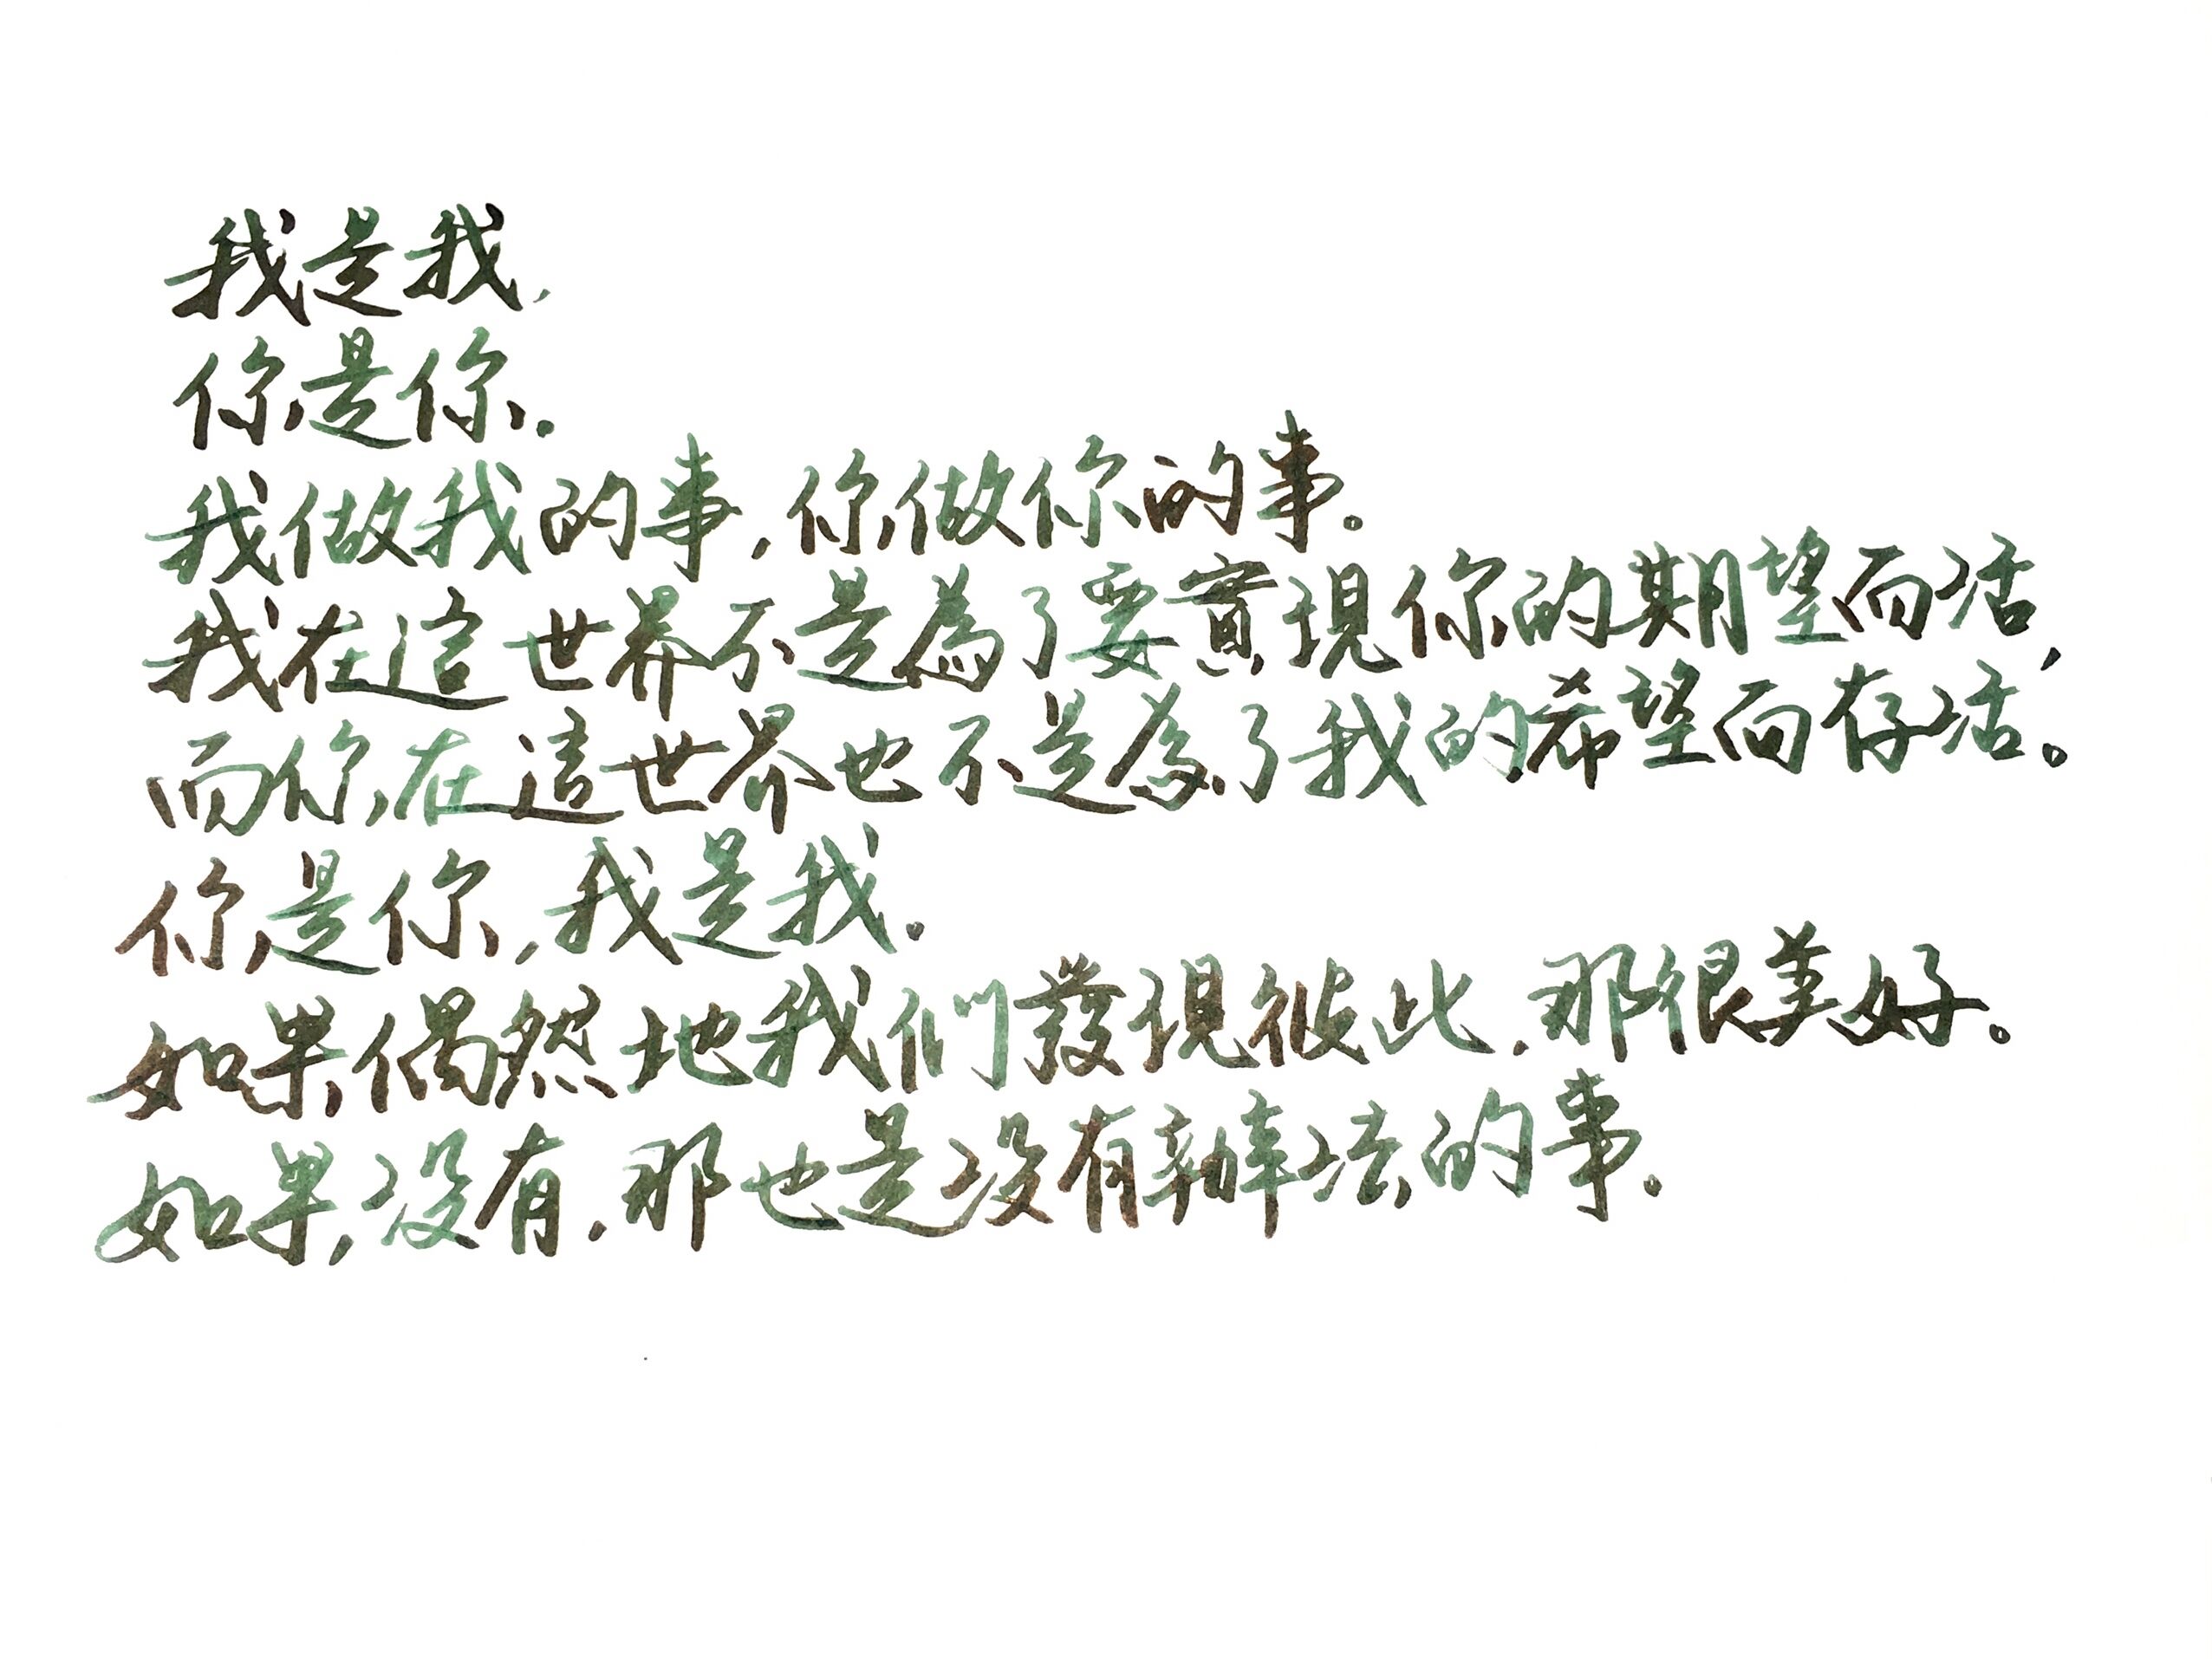 我是我，
你是你。
我做我的事，你做你的事。
我在這世界不是為了要實現你的期望而活，
而你在這世界也不是為了我的希望而存活。
你是你，我是我。
如果偶然地我們發現彼此，那很美好。
如果沒有，那也是沒有辦法的事。